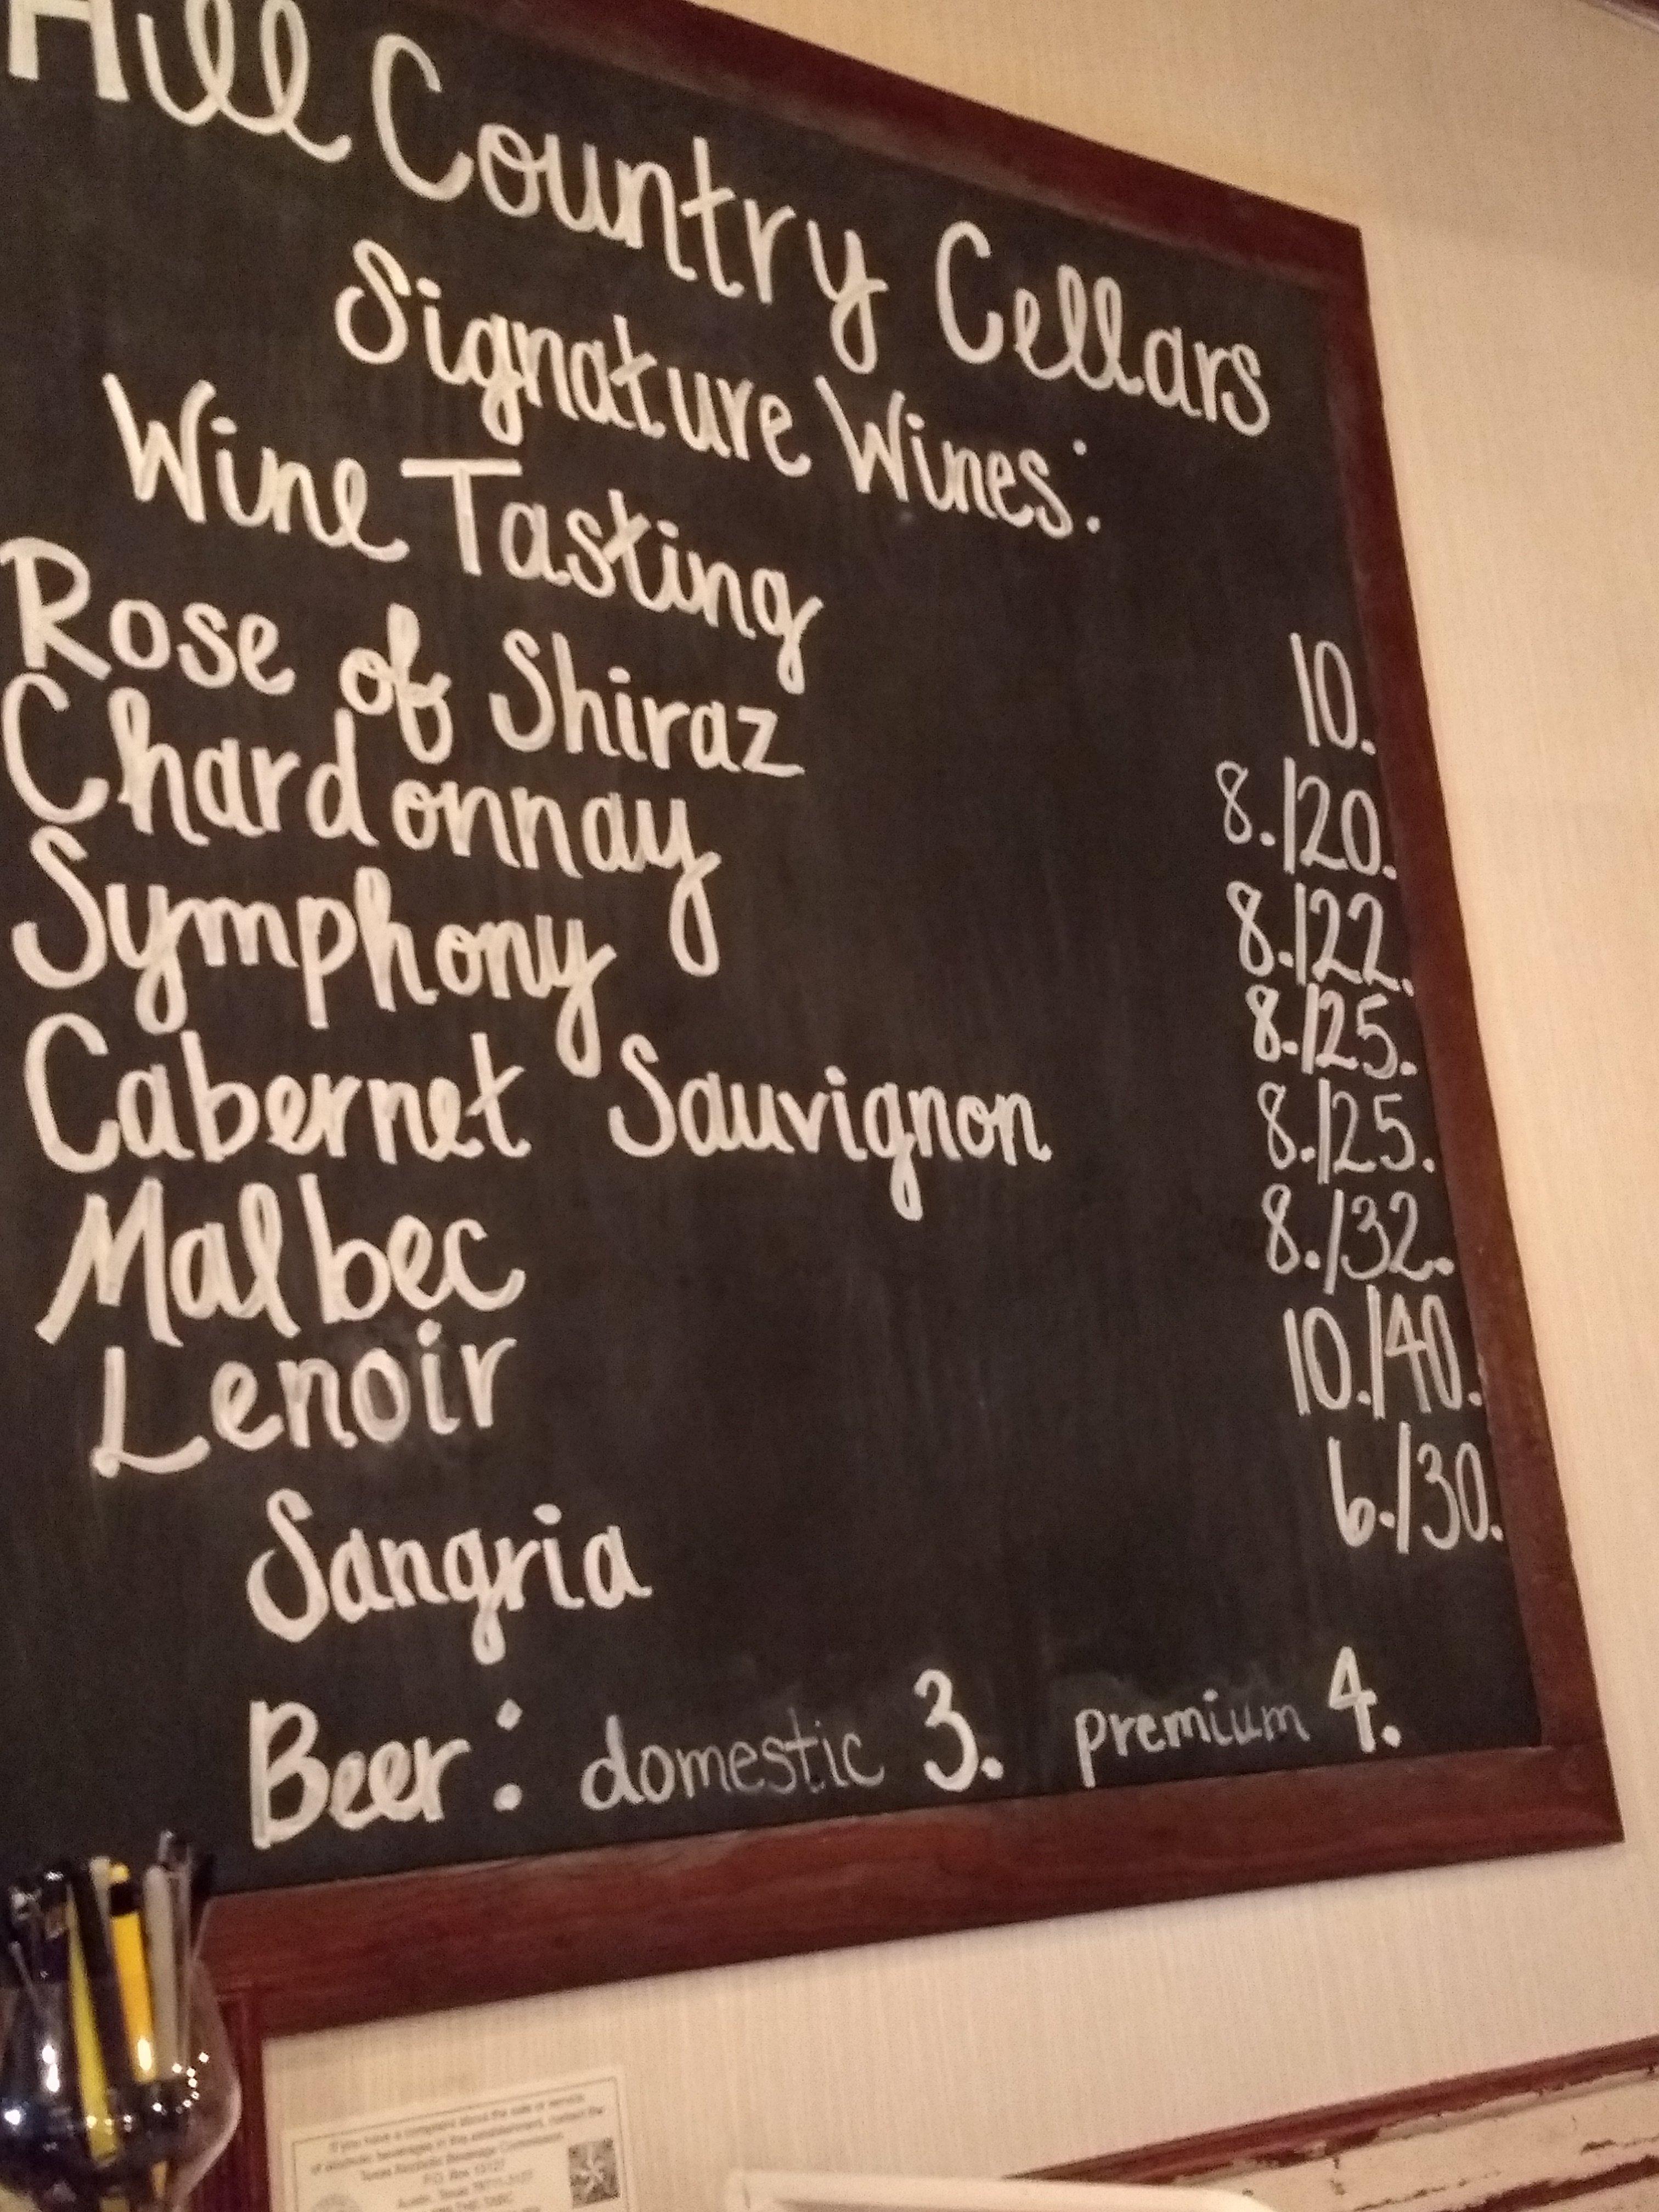 Hill Country Cellars
Signature Wines:
Wine Tasting 10.
Rose of Shiraz 8./20.
Chardonnay 8./22.
Symphony 8./25.
Cabernet Sauvignon 8./25.
Malbec 8./32.
Lenoir 10./40.
Sangria 6./30.
Beer: domestic 3. premium 4.
If you have a complaint about the sale or service
of alcoholic beverages in this establishment, contact the
Texas Alcoholic Beverage Commission
P.O. Box 13127
Austin, Texas